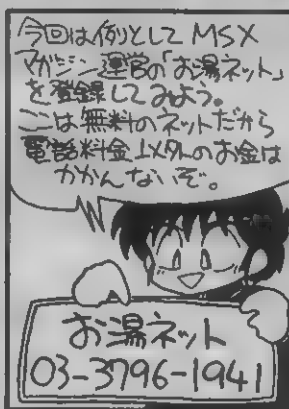 今回は例として MSX
マガジン運営の「お湯ネット」
を登録してみよう。
ここは無料のネットだから
電話料金以外のお金は
かかんないぞ。
お湯ネット
03-3796-1941